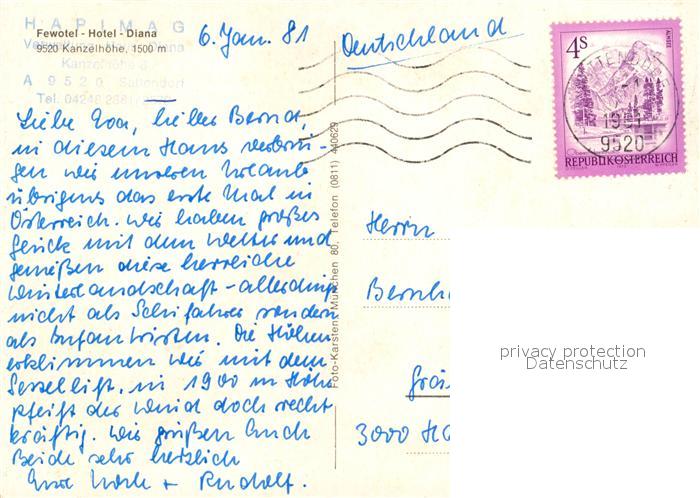 HAPIMAG
Fewotel - Hotel - Diana
9520 Kanzelhöhe, 1500 m
Kanzelhöhe
A 9520 Sattendorf
Tel. 04248
6. Jan. 81
Deutschland
Liebe Eva, lieber Bernd,
in diesem Haus verbrin-
gen wir unseren Urlaub
übrigens das erste Mal in
Österreich. Wir haben großes
Glück mit dem Wetter und
genießen diese herrliche
Winterlandschaft - allerdings
nicht als Schifahrer sondern
als Infanteristen. Die Höhen
erklimmen wir mit dem
Sessellift. in 1900 m Höhe
pfeift der Wind doch recht
kräftig. Wir grüßen Euch
Beide sehr herzlich
Eure + Rudolf.
Foto-Karsten, München 80, Telefon (0811) 440629
4S
ALMSEE
REPUBLIK ÖSTERREICH
9520
Herrn
Bernh
3000 HA
privacy protection
Datenschutz